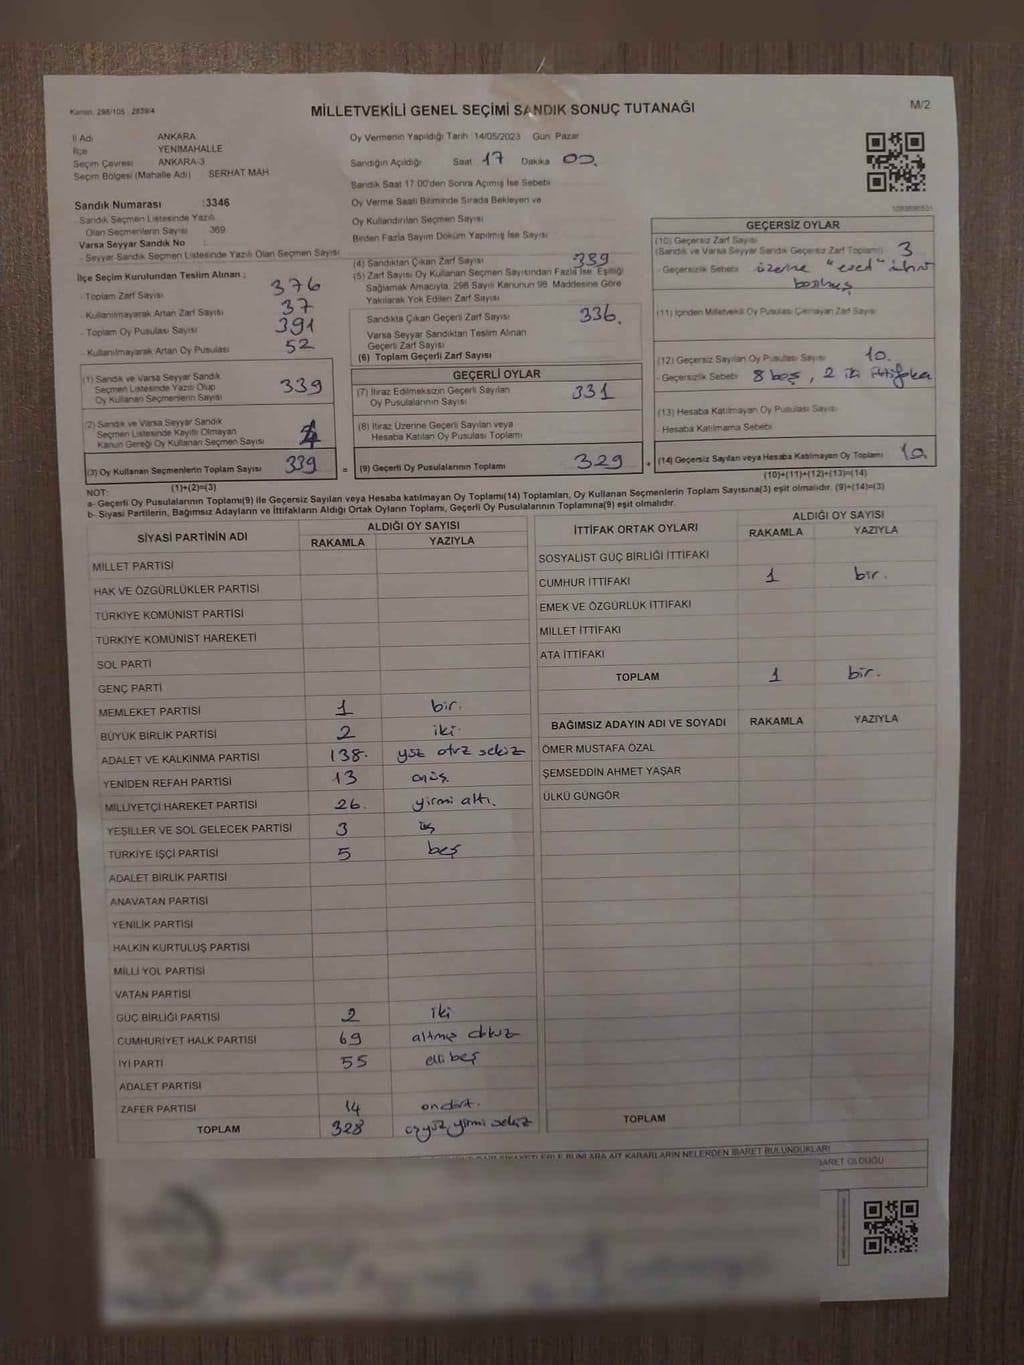 Kanun: 298/105 2839/4
MİLLETVEKİLİ GENEL SEÇİMİ SANDIK SONUÇ TUTANAĞI
M/2
İl Adı ANKARA
İlçe YENİMAHALLE
Seçim Çevresi ANKARA-3
Seçim Bölgesi (Mahalle Adı) SERHAT MAH.
Oy Vermenin Yapıldığı Tarih 14/05/2023 Gün Pazar
Sandığın Açıldığı Saat 17 Dakika 00.
Sandık Saat 17.00'den Sonra Açımış İse Sebebi
Oy Verme Saati Bitiminde Sırada Bekleyen ve
Oy Kullandırılan Seçmen Sayısı
Birden Fazla Sayım Döküm Yapılmış İse Sayısı
Sandık Numarası :3346
- Sandık Seçmen Listesinde Yazılı
Olan Seçmenlerin Sayısı 369
Varsa Seyyar Sandık No :
- Seyyar Sandık Seçmen Listesinde Yazılı Olan Seçmen Sayısı
İlçe Seçim Kurulundan Teslim Alınan ;
- Toplam Zarf Sayısı 376
- Kullanılmayarak Artan Zarf Sayısı 37
- Toplam Oy Pusulası Sayısı 391
- Kullanılmayarak Artan Oy Pusulası 52
(1) Sandık ve Varsa Seyyar Sandık
Seçmen Listesinde Yazılı Olup
Oy Kullanan Seçmenlerin Sayısı 339
(2) Sandık ve Varsa Seyyar Sandık
Seçmen Listesinde Kayıtlı Olmayan
Kanun Gereği Oy Kullanan Seçmen Sayısı
(3) Oy Kullanan Seçmenlerin Toplam Sayısı 339
(1)+(2)=(3)
(4) Sandıktan Çıkan Zarf Sayısı 339
(5) Zarf Sayısı Oy Kullanan Seçmen Sayısından Fazla İse, Eşitliği
Sağlamak Amacıyla, 298 Sayılı Kanunun 98. Maddesine Göre
Yakılarak Yok Edilen Zarf Sayısı
Sandıkta Çıkan Geçerli Zarf Sayısı 336.
Varsa Seyyar Sandıktan Teslim Alınan
Geçerli Zarf Sayısı
(6) Toplam Geçerli Zarf Sayısı
GEÇERLİ OYLAR
(7) İtiraz Edilmeksizin Geçerli Sayılan
Oy Pusulalarının Sayısı 331
(8) İtiraz Üzerine Geçerli Sayılan veya
Hesaba Katılan Oy Pusulası Toplamı
= (9) Geçerli Oy Pusulalarının Toplamı 329 +
GEÇERSİZ OYLAR
(10) Geçersiz Zarf Sayısı
(Sandık ve Varsa Seyyar Sandık Geçersiz Zarf Toplamı) 3
- Geçersizlik Sebebi üzerine "evet"
(11) İçinden Milletvekili Oy Pusulası Çıkmayan Zarf Sayısı
(12) Geçersiz Sayılan Oy Pusulası Sayısı 10.
- Geçersizlik Sebebi 8 boş, 2 iki ittifaka
(13) Hesaba Katılmayan Oy Pusulası Sayısı
- Hesaba Katılmama Sebebi
(14) Geçersiz Sayılan veya Hesaba Katılmayan Oy Toplamı 10
(10)+(11)+(12)+(13)=(14)
NOT:
a- Geçerli Oy Pusulalarının Toplamı(9) ile Geçersiz Sayılan veya Hesaba katılmayan Oy Toplamı(14) Toplamları, Oy Kullanan Seçmenlerin Toplam Sayısına(3) eşit olmalıdır. (9)+(14)=(3)
b- Siyasi Partilerin, Bağımsız Adayların ve İttifakların Aldığı Ortak Oyların Toplamı, Geçerli Oy Pusulalarının Toplamına(9) eşit olmalıdır.
SİYASİ PARTİNİN ADI ALDIĞI OY SAYISI
RAKAMLA YAZIYLA
MİLLET PARTİSİ
HAK VE ÖZGÜRLÜKLER PARTİSİ
TÜRKİYE KOMÜNİST PARTİSİ
TÜRKİYE KOMÜNİST HAREKETİ
SOL PARTİ
GENÇ PARTİ
MEMLEKET PARTİSİ 1 bir.
BÜYÜK BİRLİK PARTİSİ 2 iki
ADALET VE KALKINMA PARTİSİ 138. yüz otuz sekiz
YENİDEN REFAH PARTİSİ 13 onüç.
MİLLİYETÇİ HAREKET PARTİSİ 26. yirmi altı.
YEŞİLLER VE SOL GELECEK PARTİSİ 3 üç
TÜRKİYE İŞÇİ PARTİSİ 5 beş
ADALET BİRLİK PARTİSİ
ANAVATAN PARTİSİ
YENİLİK PARTİSİ
HALKIN KURTULUŞ PARTİSİ
MİLLİ YOL PARTİSİ
VATAN PARTİSİ
GÜÇ BİRLİĞİ PARTİSİ 2 iki
CUMHURİYET HALK PARTİSİ 69 altmış dokuz
İYİ PARTİ 55 elli beş
ADALET PARTİSİ
ZAFER PARTİSİ 14 ondört.
TOPLAM 328 üçyüz yirmi sekiz
İTTİFAK ORTAK OYLARI ALDIĞI OY SAYISI
RAKAMLA YAZIYLA
SOSYALİST GÜÇ BİRLİĞİ İTTİFAKI
CUMHUR İTTİFAKI 1 bir.
EMEK VE ÖZGÜRLÜK İTTİFAKI
MİLLET İTTİFAKI
ATA İTTİFAKI
TOPLAM 1 bir.
BAĞIMSIZ ADAYIN ADI VE SOYADI RAKAMLA YAZIYLA
ÖMER MUSTAFA ÖZAL
ŞEMSEDDİN AHMET YAŞAR
ÜLKÜ GÜNGÖR
TOPLAM
BUNLARA AİT KARARLARIN NELERDEN İBARET BULUNDUKLARI